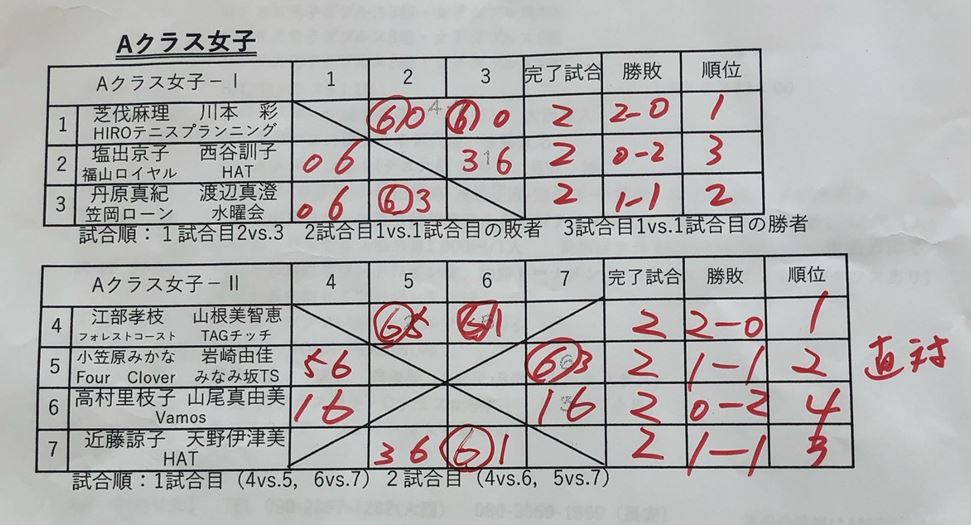 Aクラス女子
Aクラス女子－Ⅰ 1 2 3 完了試合 勝敗 順位
1 芝伐麻理 川本 彩 ⑥0 ⑥0 2 2-0 1
HIROテニスプランニング
2 塩出京子 西谷訓子 0 6 3 6 2 0-2 3
福山ロイヤル HAT
3 丹原真紀 渡辺真澄 0 6 ⑥3 2 1-1 2
笠岡ローン 水曜会
試合順：１試合目2vs.3 2試合目1vs.1試合目の敗者 3試合目1vs.1試合目の勝者
Aクラス女子－Ⅱ 4 5 6 7 完了試合 勝敗 順位
4 江部孝枝 山根美智恵 ⑥5 ⑥1 2 2-0 1
フォレストコースト TAGチッチ
5 小笠原みかな 岩崎由佳 5 6 ⑥3 2 1-1 2 直対
Four Clover みなみ坂TS
6 高村里枝子 山尾真由美 1 6 1 6 2 0-2 4
Vamos
7 近藤諒子 天野伊津美 3 6 ⑥1 2 1-1 3
HAT
試合順：1試合目（4vs.5, 6vs.7）２試合目（4vs.6, 5vs.7）